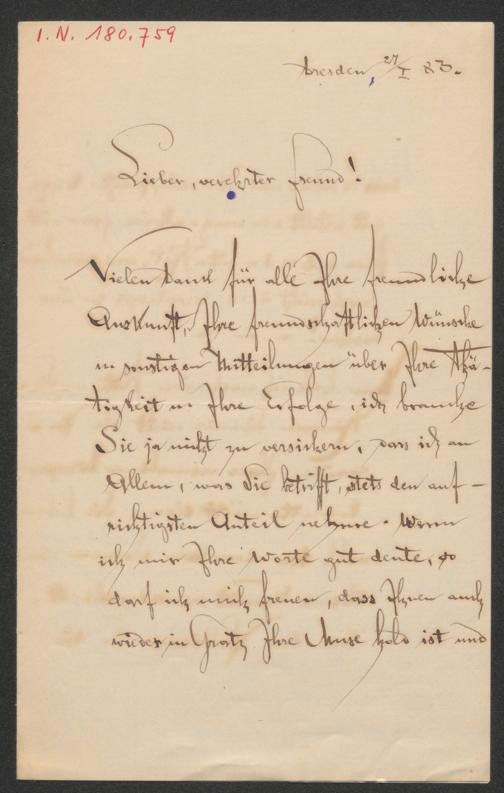 I. N. 180.759
Dresden, 27/I 83.
Lieber, verehrter Freund!
Vielen Dank für alle Ihre freundliche
Auskunft, Ihre freundschaftlichen Wünsche
u. sonstigen Mitteilungen über Ihre Thä-
tigkeit u. Ihre Erfolge, ich brauche
Sie ja nicht zu versichern, dass ich an
Allem, was Sie betrifft, stets den auf-
richtigsten Anteil nehme. Wenn
ich mir Ihre Worte gut deute, so
darf ich mich freuen, dass Ihnen auch
wieder in Gratz Ihre Muse hold ist und